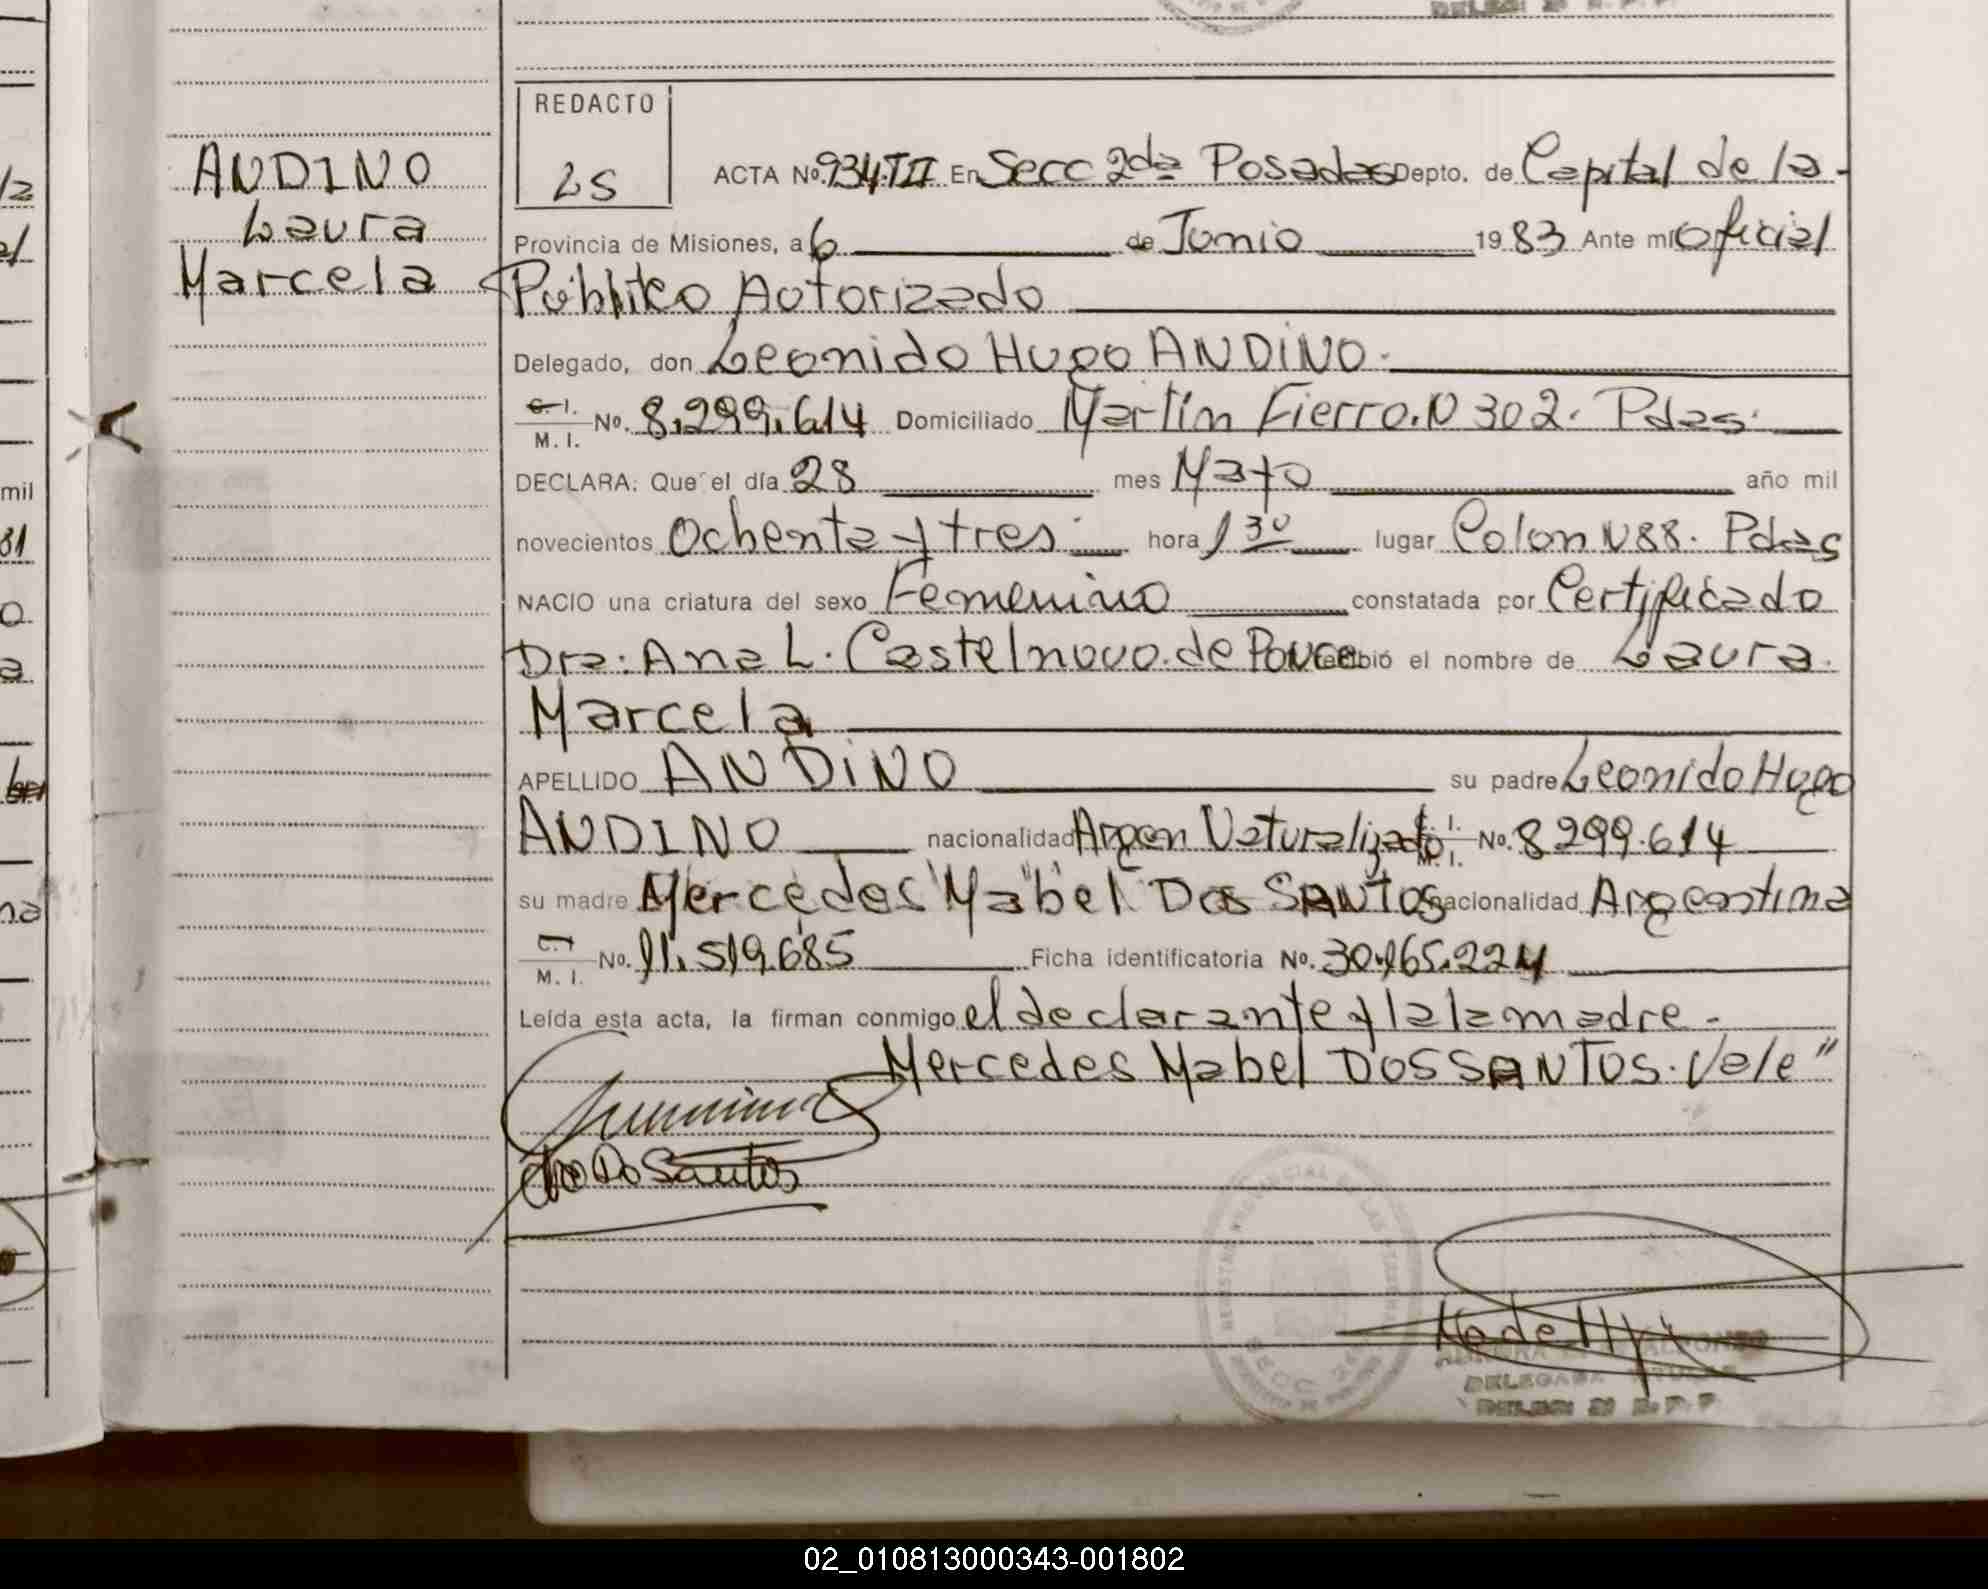 ANDINO
Laura
Marcela
REDACTO
LS
ACTA Nº. 934.TII En Secc 2da Posadas Depto. de Capital de la.
Provincia de Misiones, a 6 de Junio 1983 Ante mi Oficial
Público Autorizado
Delegado, don Leonido Hugo ANDINO.
C. I.
M. I. No. 8.299.614 Domiciliado Martín Fierro. N 302. Pdas.
DECLARA: Que el día 28 mes Mayo año mil
novecientos Ochenta y tres hora 1 30 lugar Colon N 88. Pdas
NACIO una criatura del sexo Femenino constatada por Certificado
Dra: Ana L. Castelnovo. de Ponce recibió el nombre de Laura.
Marcela
APELLIDO ANDINO su padre Leonido Hugo
ANDINO nacionalidad Argen Naturalizado C. I.
M. I. No. 8 299.614
su madre Mercedes "Mabel" Dos SANTOS nacionalidad Argentina
M. I. No. 11.519.685 Ficha identificatoria No. 30.165.224
Leída esta acta, la firman conmigo el declarante y la la madre.-
Mercedes Mabel DOS SANTOS. Vale"
Do Santos
DELEGADA TITULAR
mil
02_010813000343-001802